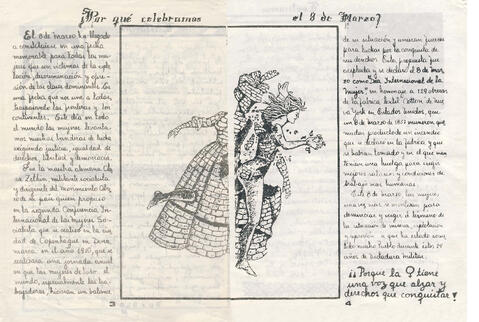 ¿Por qué celebramos el 8 de Marzo?
El 8 de marzo ha llegado
a constituirse en una fecha
memorable para todas las mu-
jeres que son víctimas de la explo-
tación, discriminación y opre-
sión de las clases dominantes. Es
una fecha que nos une a todas,
traspasando las fronteras y los
continentes. Este día en todo
el mundo las mujeres levanta-
mos nuestras banderas de lucha
exigiendo justicia, igualdad de
derechos, libertad y democracia.
Fue la maestra alemana Cla-
ra Zetkin, militante socialista
y dirigente del movimiento Obre-
ro de su país quien propuso
en la segunda Conferencia In-
ternacional de las mujeres So-
cialistas que se realizó en la ciu-
dad de Copenhague en Dina-
marca en el año 1910, que se
realizara una jornada anual
en que las mujeres de todo el
mundo, especialmente las tra-
bajadoras, hicieran un balance
3
de su situación y unieran fuerzas
para luchar por la conquista de
sus derechos. Esta propuesta fue
aceptada y se declaró el 8 de mar-
zo como "Día Internacional de la
Mujer", en homenaje a 129 obreras
de la fábrica textil Cotton de Nue-
va York en Estados Unidos, que
un 8 de marzo de 1857 murieron que-
madas producto de un incendio
que se declaró en la fábrica y que
se habían tomado y en el que man-
tenían una huelga para exigir
mejores salarios y condiciones de
trabajo más humanas.
Este 8 de marzo, las mujeres,
una vez más se movilizan para
denunciar y exigir el término de
la situación de miseria, explotación
y opresión a que ha estado some-
tido nuestro pueblo durante estos
años de dictadura militar.
¡¡Porque la ♀ tiene
una voz que alzar y
derechos que conquistar!
4